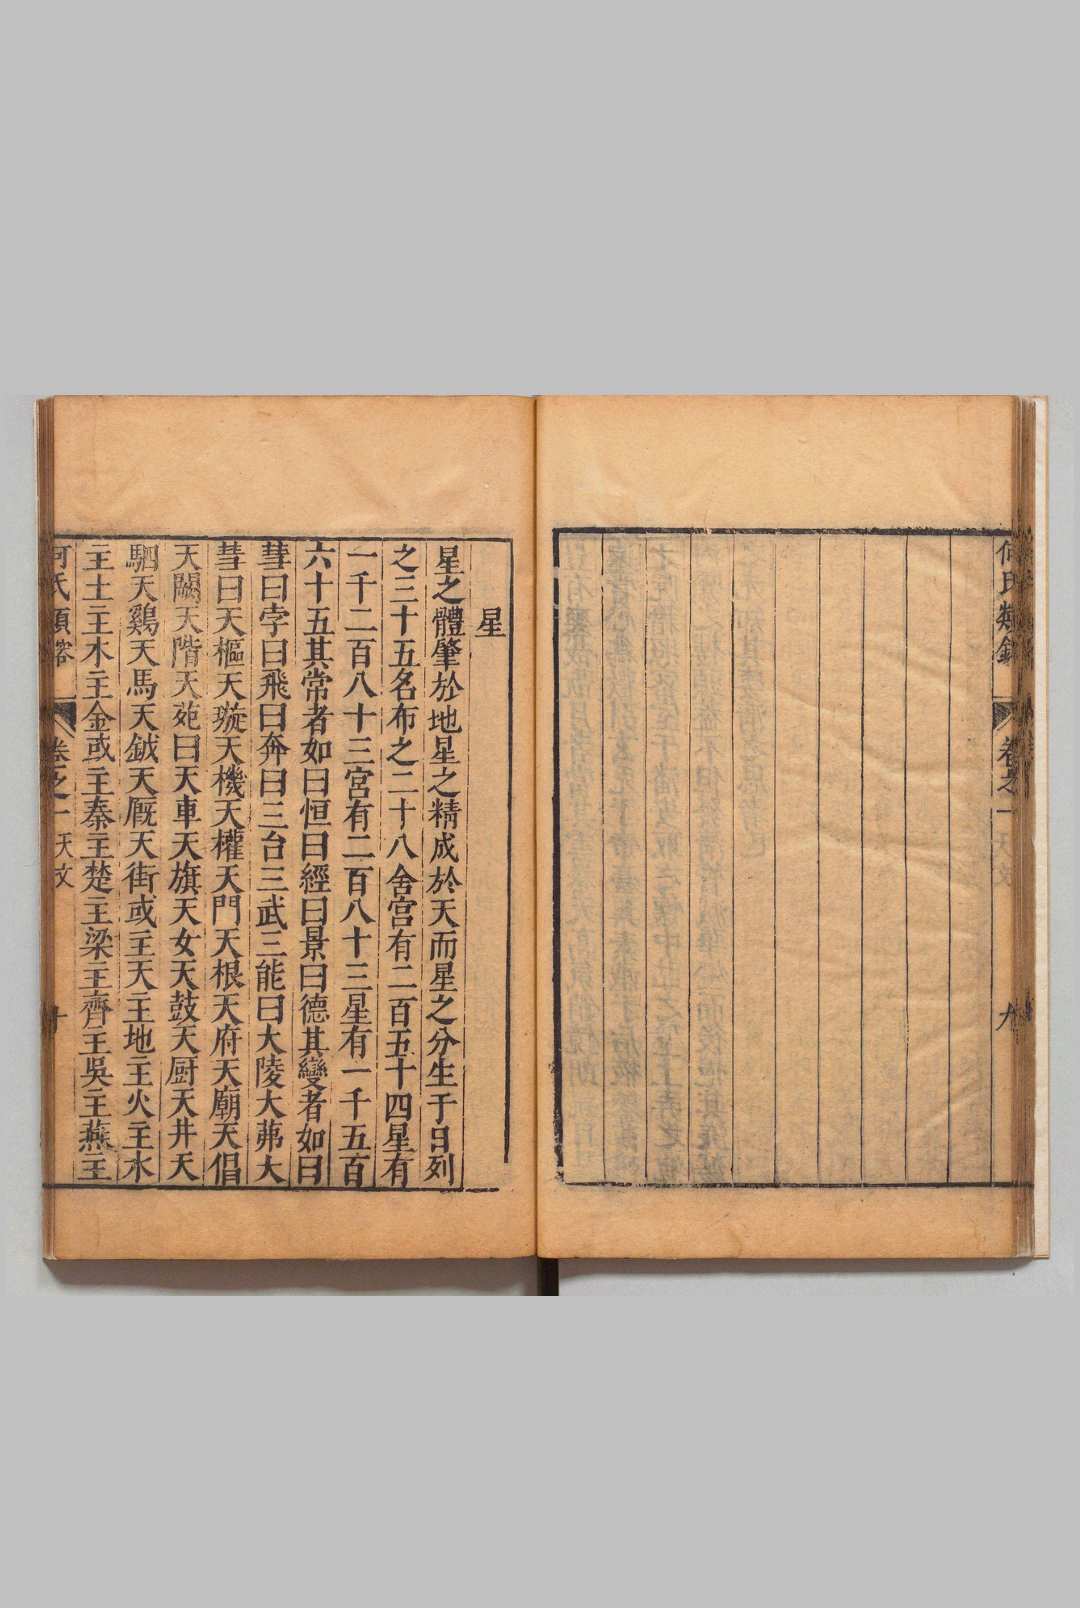 何氏類鎔 卷之一 天文 九
星
星之體肇於地星之精成於天而星之分生于日列
之三十五名布之二十八舍宫有二百五十四星有
一千二百八十三宮有二百八十三星有一千五百
六十五其常者如曰恒曰經曰景曰德其變者如曰
彗曰孛曰飛曰奔曰三台三武三能曰大陵大茀大
彗曰天樞天璇天機天權天門天根天府天廟天倡
天闕天階天苑曰天車天旗天女天鼓天厨天井天
駟天鷄天馬天鉞天厩天街或主天主地主火主水
主土主木主金或主秦主楚主梁主齊主吳主燕主
何氏類鎔 卷之一 天文 十